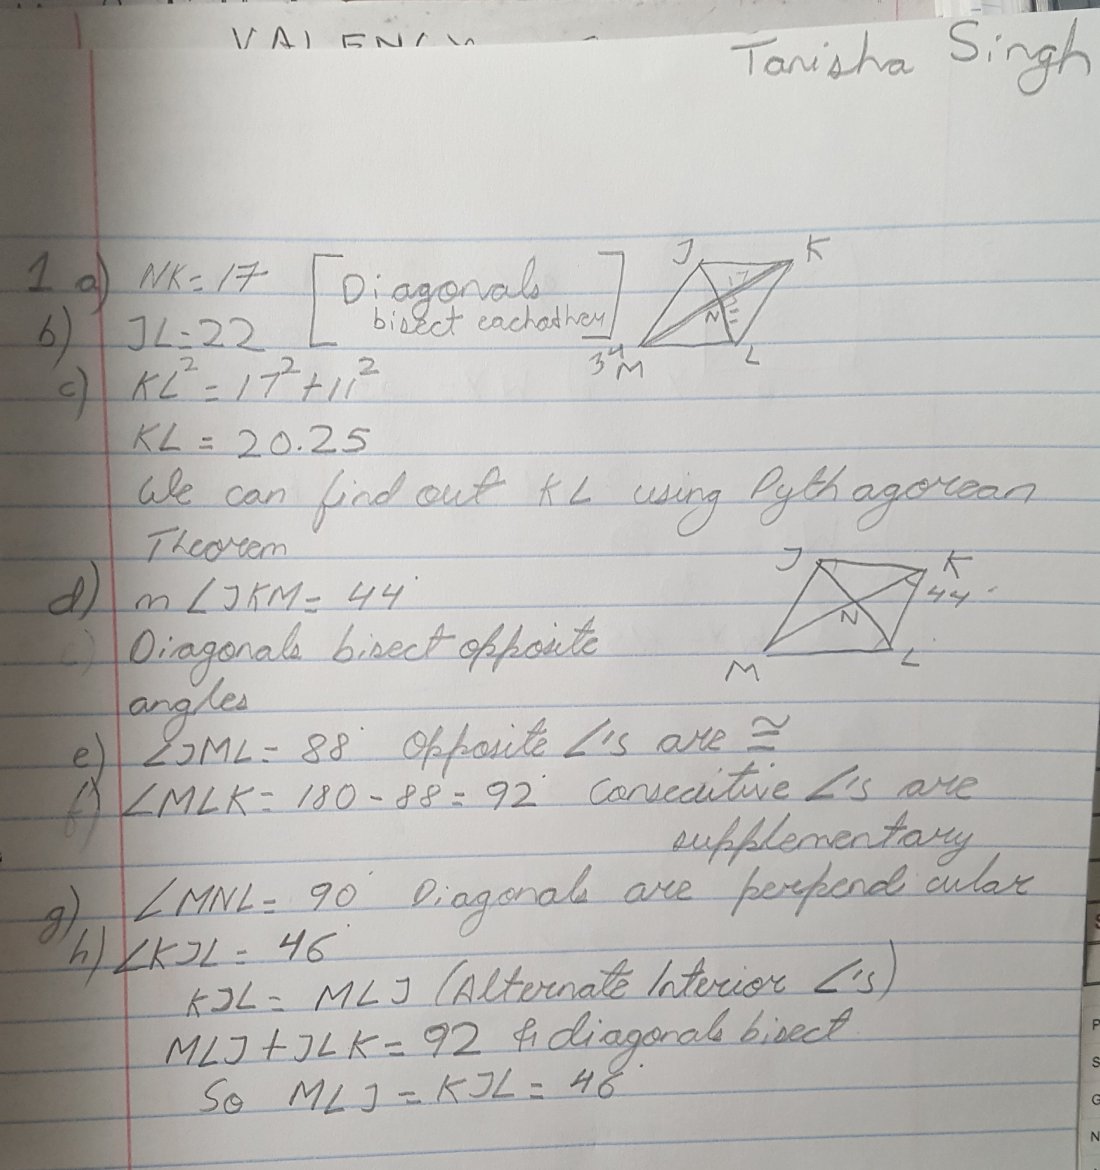 Tanisha Singh
1 a) NK = 17 [Diagonals bisect eachother]
J K 17 N M L 34
b) JL = 22
c) KL² = 17² + 11²
KL = 20.25
We can find out KL using Pythagorean
Theorem
d) m∠JKM = 44°
J K 44° N M L
Diagonals bisect opposite
angles
e) ∠JML = 88° Opposite ∠'s are ≅
f) ∠MLK = 180 - 88 = 92° Consecutive ∠'s are
supplementary
g) ∠MNL = 90° Diagonals are perpendicular
h) ∠KJL = 46°
KJL = MLJ (Alternate Interior ∠'s)
MLJ + JLK = 92 & diagonals bisect
So MLJ = KJL = 46°